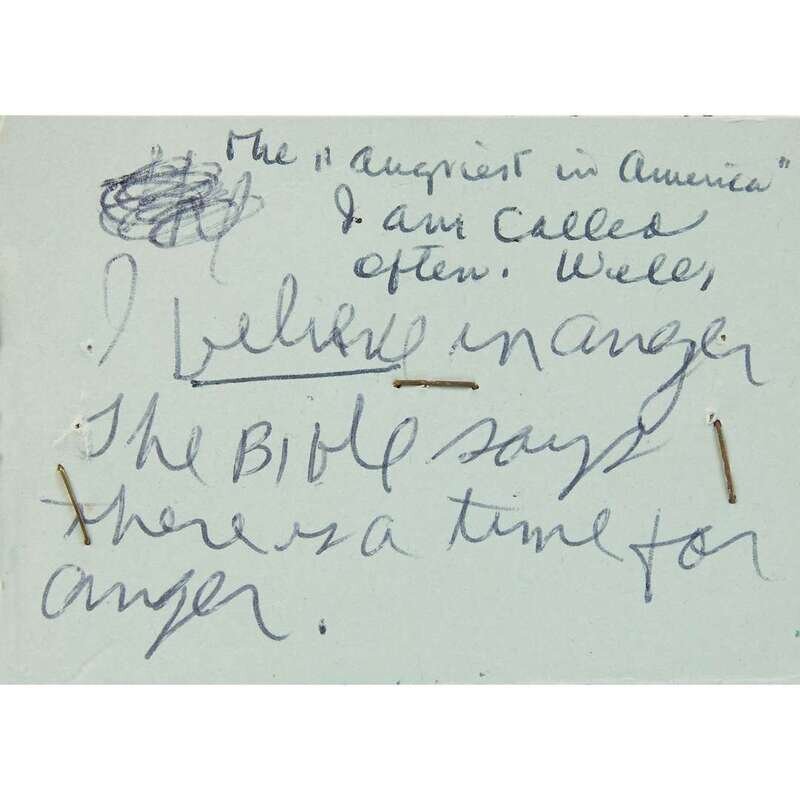 The "angriest in America"
I am Called
often. Well,
I believe in anger
The Bible says
there is a time for
anger.